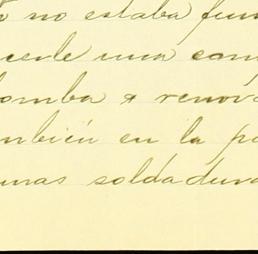 no estaba fun
cerle una com
bomba a renova
ambién en la pa
unas soldadura